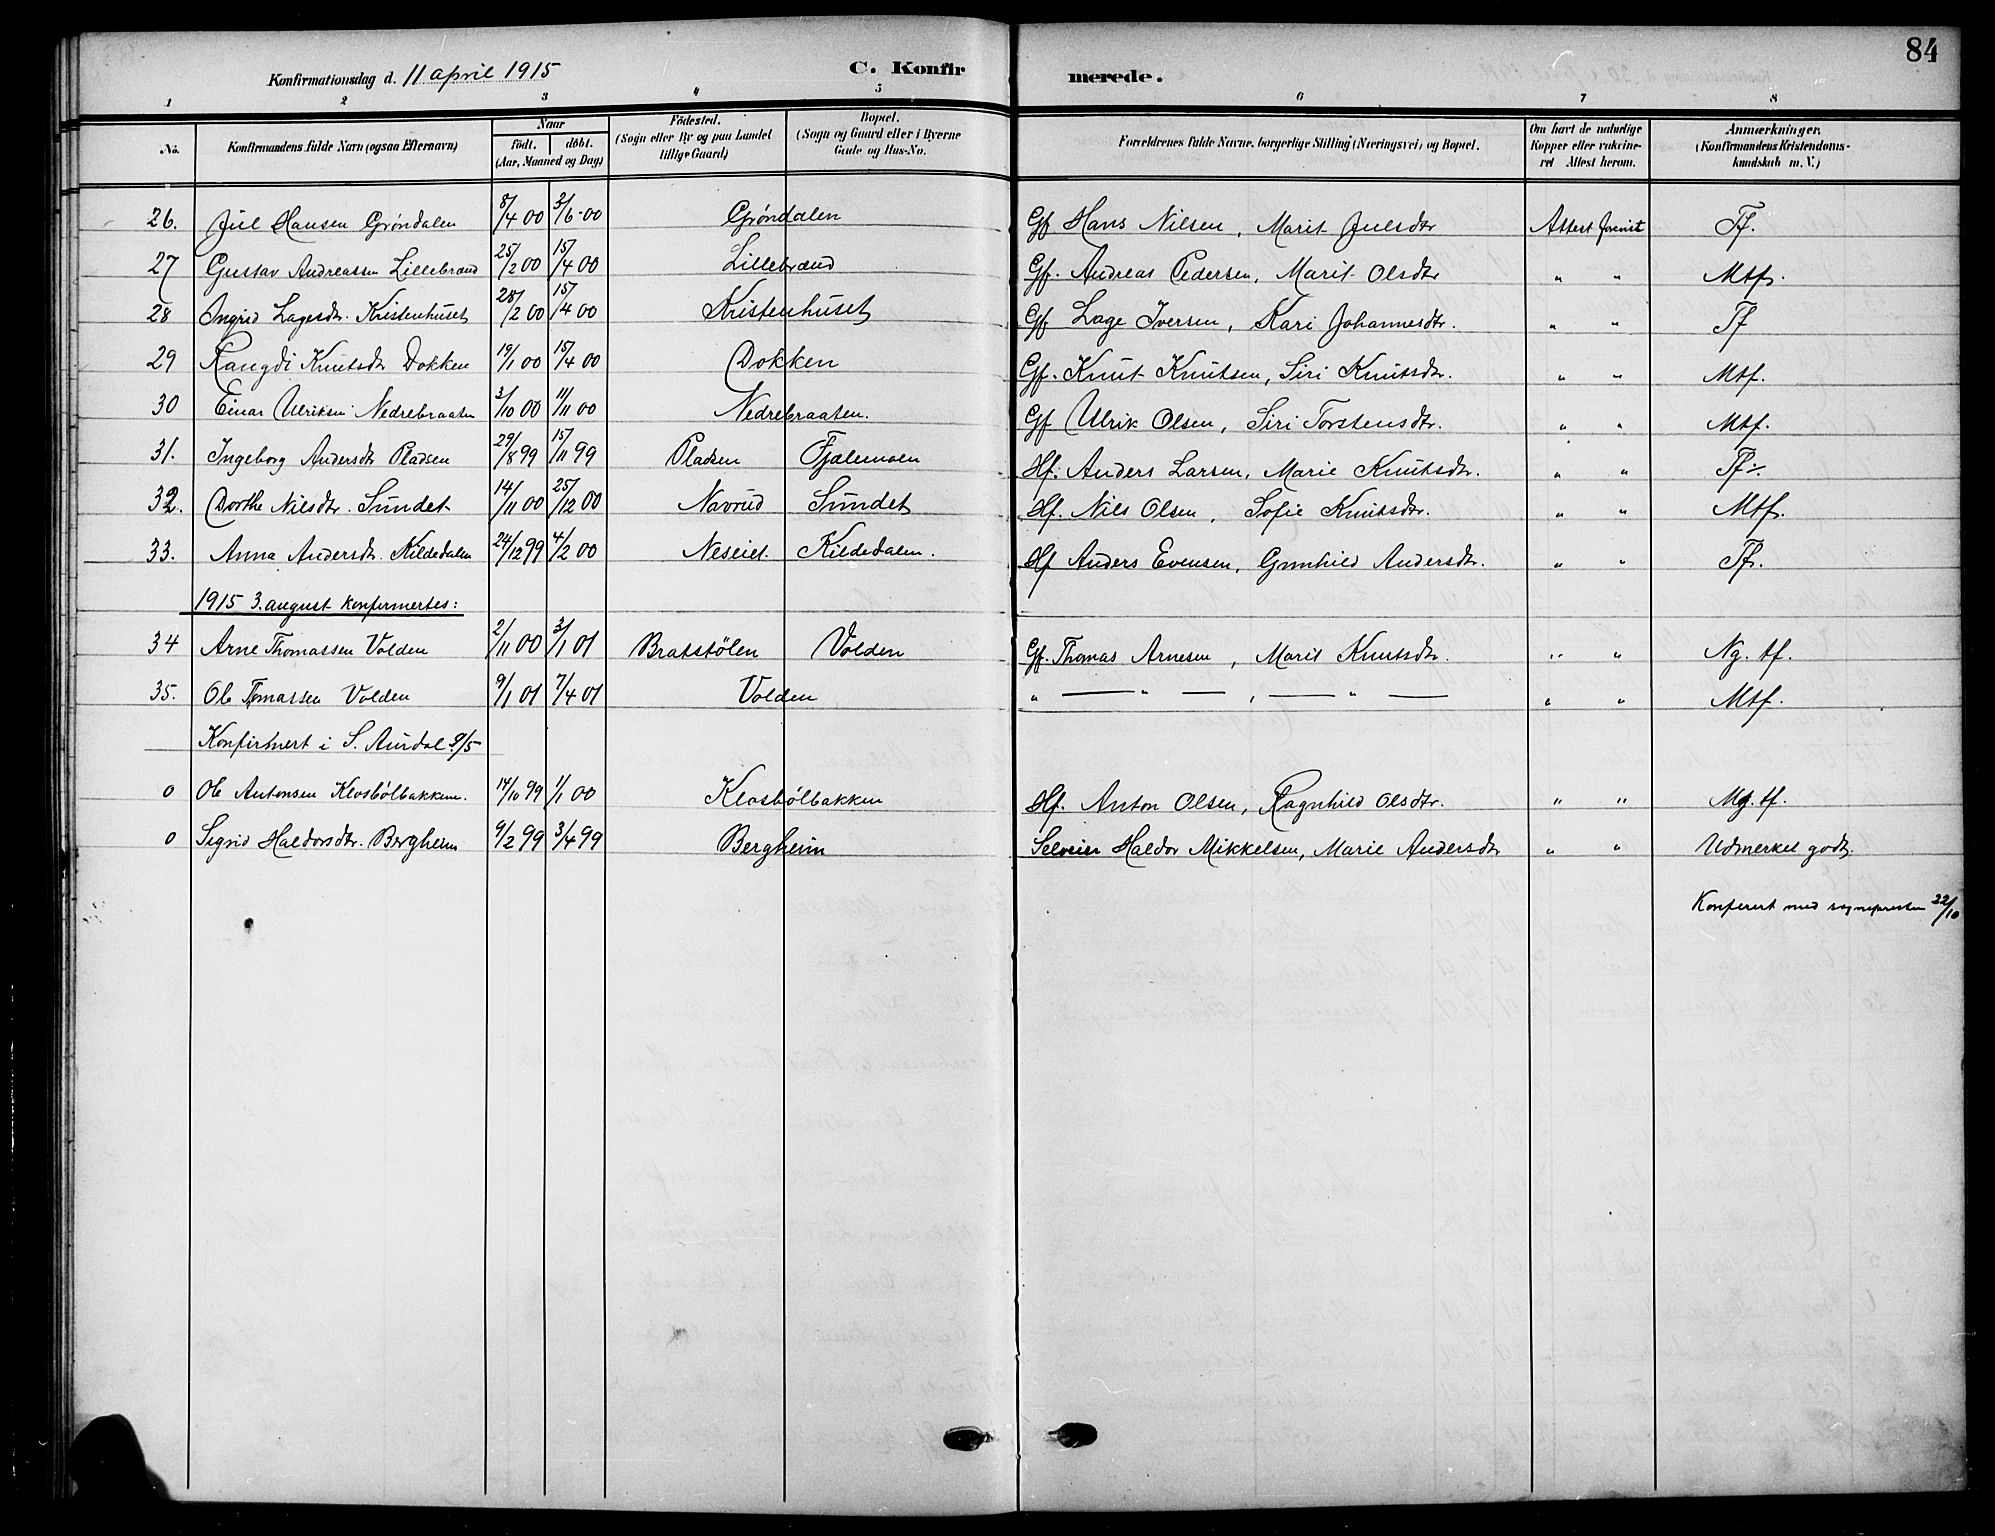 84
Konfirmationsdag d. 11 april 1915 C. Konfirmerede.
1 2 3 4 5 6 7 8
No. Konfirmandens fulde Navn (ogsaa Efternavn) Naar födt. döbt. (Aar, Maaned og Dag) Födested. (Sogn eller By og paa Landet tillige Gaard) Bopæl. (Sogn og Gaard eller i Byerne Gade og Hus-No. Forældrenes fulde Navne, borgerlige Stilling (Næringsvei) og Bopæl. Om havt de naturlige Kopper eller vakcineret Attest herom. Anmærkninger. (Konfirmandens Kristendomskundskab m. V.)
26. Jul Hansen Grøndalen 8/4 00 3/6 00 Grøndalen Gf Hans Nilsen, Marit Julsdtr Attest forevist Tf.
27 Gustav Andreassen Lillebrænd 25/2 00 15/4 00 Lillebrænd Gf. Andreas Pedersen, Marit Olsdtr " " Mtf.
28 Ingrid Lagesdtr. Kristenhuset 28/2 00 15/4 00 Kristenhuset Gf. Lage Iversen, Kari Johannesdtr. " " Tf
29 Rangdi Knutsdtr Dokken 19/1 00 15/4 00 Dokken Gf. Knut Knutsen, Siri Knutsdtr. " " Mtf.
30 Einar Ulriksen Nedrebraaten 3/10 00 11/11 00 Nedrebraaten. Gf Ulrik Olsen, Siri Torstensdtr. " " Mtf.
31. Ingeborg Andersdtr Pladsen 29/8 99 15/11 99 Pladsen Fjælemoen Hf. Anders Larsen, Marie Knutsdtr. " " Tf.
32. Dorthe Nilsdtr. Sundet 14/11 00 25/12 00 Navrud Sundet Hf. Nils Olsen, Sofie Knutsdtr. " " Mtf.
33. Anna Andersdtr. Kildedalen 24/12 99 4/2 00 Neseiet Kildedalen. Hf Anders Evensen, Gunhild Andersdtr. " " Tf.
1915 3. august konfirmertes:
34 Arne Thomassen Volden 2/11 00 3/1 01 Bratstølen Volden Gf. Thomas Arnesen, Marit Knutsdtr. " " Ng. tf.
35. Ole Tomassen Volden 9/1 01 7/4 01 Volden " — " — , — " — " " Mtf.
Konfirmert i S. Aurdal 9/5
0 Ole Antonsen Klosbølbakken. 14/10 99 1/1 00 Klosbølbakken Hf. Anton Olsen, Ragnhild Olsdtr. " " Mg. tf.
0 Sigrid Haldorsdtr. Bergheim 9/2 99 3/4 99 Bergheim Selveier Haldor Mikkelsen, Marie Andersdtr " " Udmerket godt.
Konferert med sognepresten 22/10